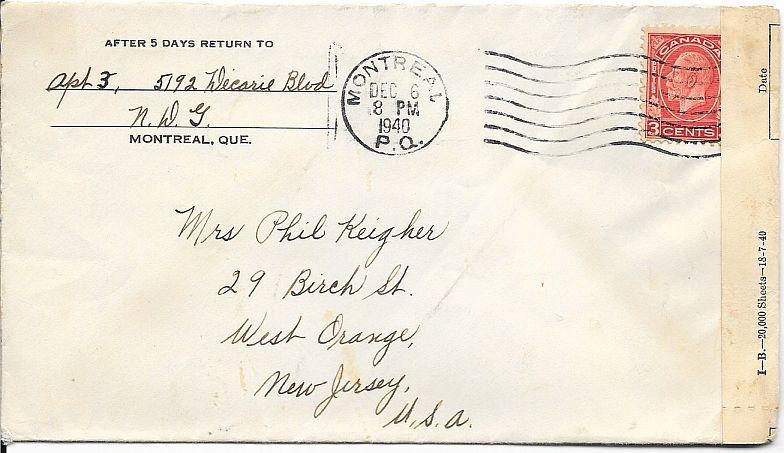 AFTER 5 DAYS RETURN TO
Apt 3, 5192 Decarie Blvd
N. D. G.
MONTREAL, QUE.
MONTREAL
DEC 6
8 PM
1940
P.Q.
CANADA
3 CENTS
Date
I—B.—20,000 Sheets—18-7-40
Mrs Phil Keigher
29 Birch St.
West Orange,
New Jersey,
U.S.A.